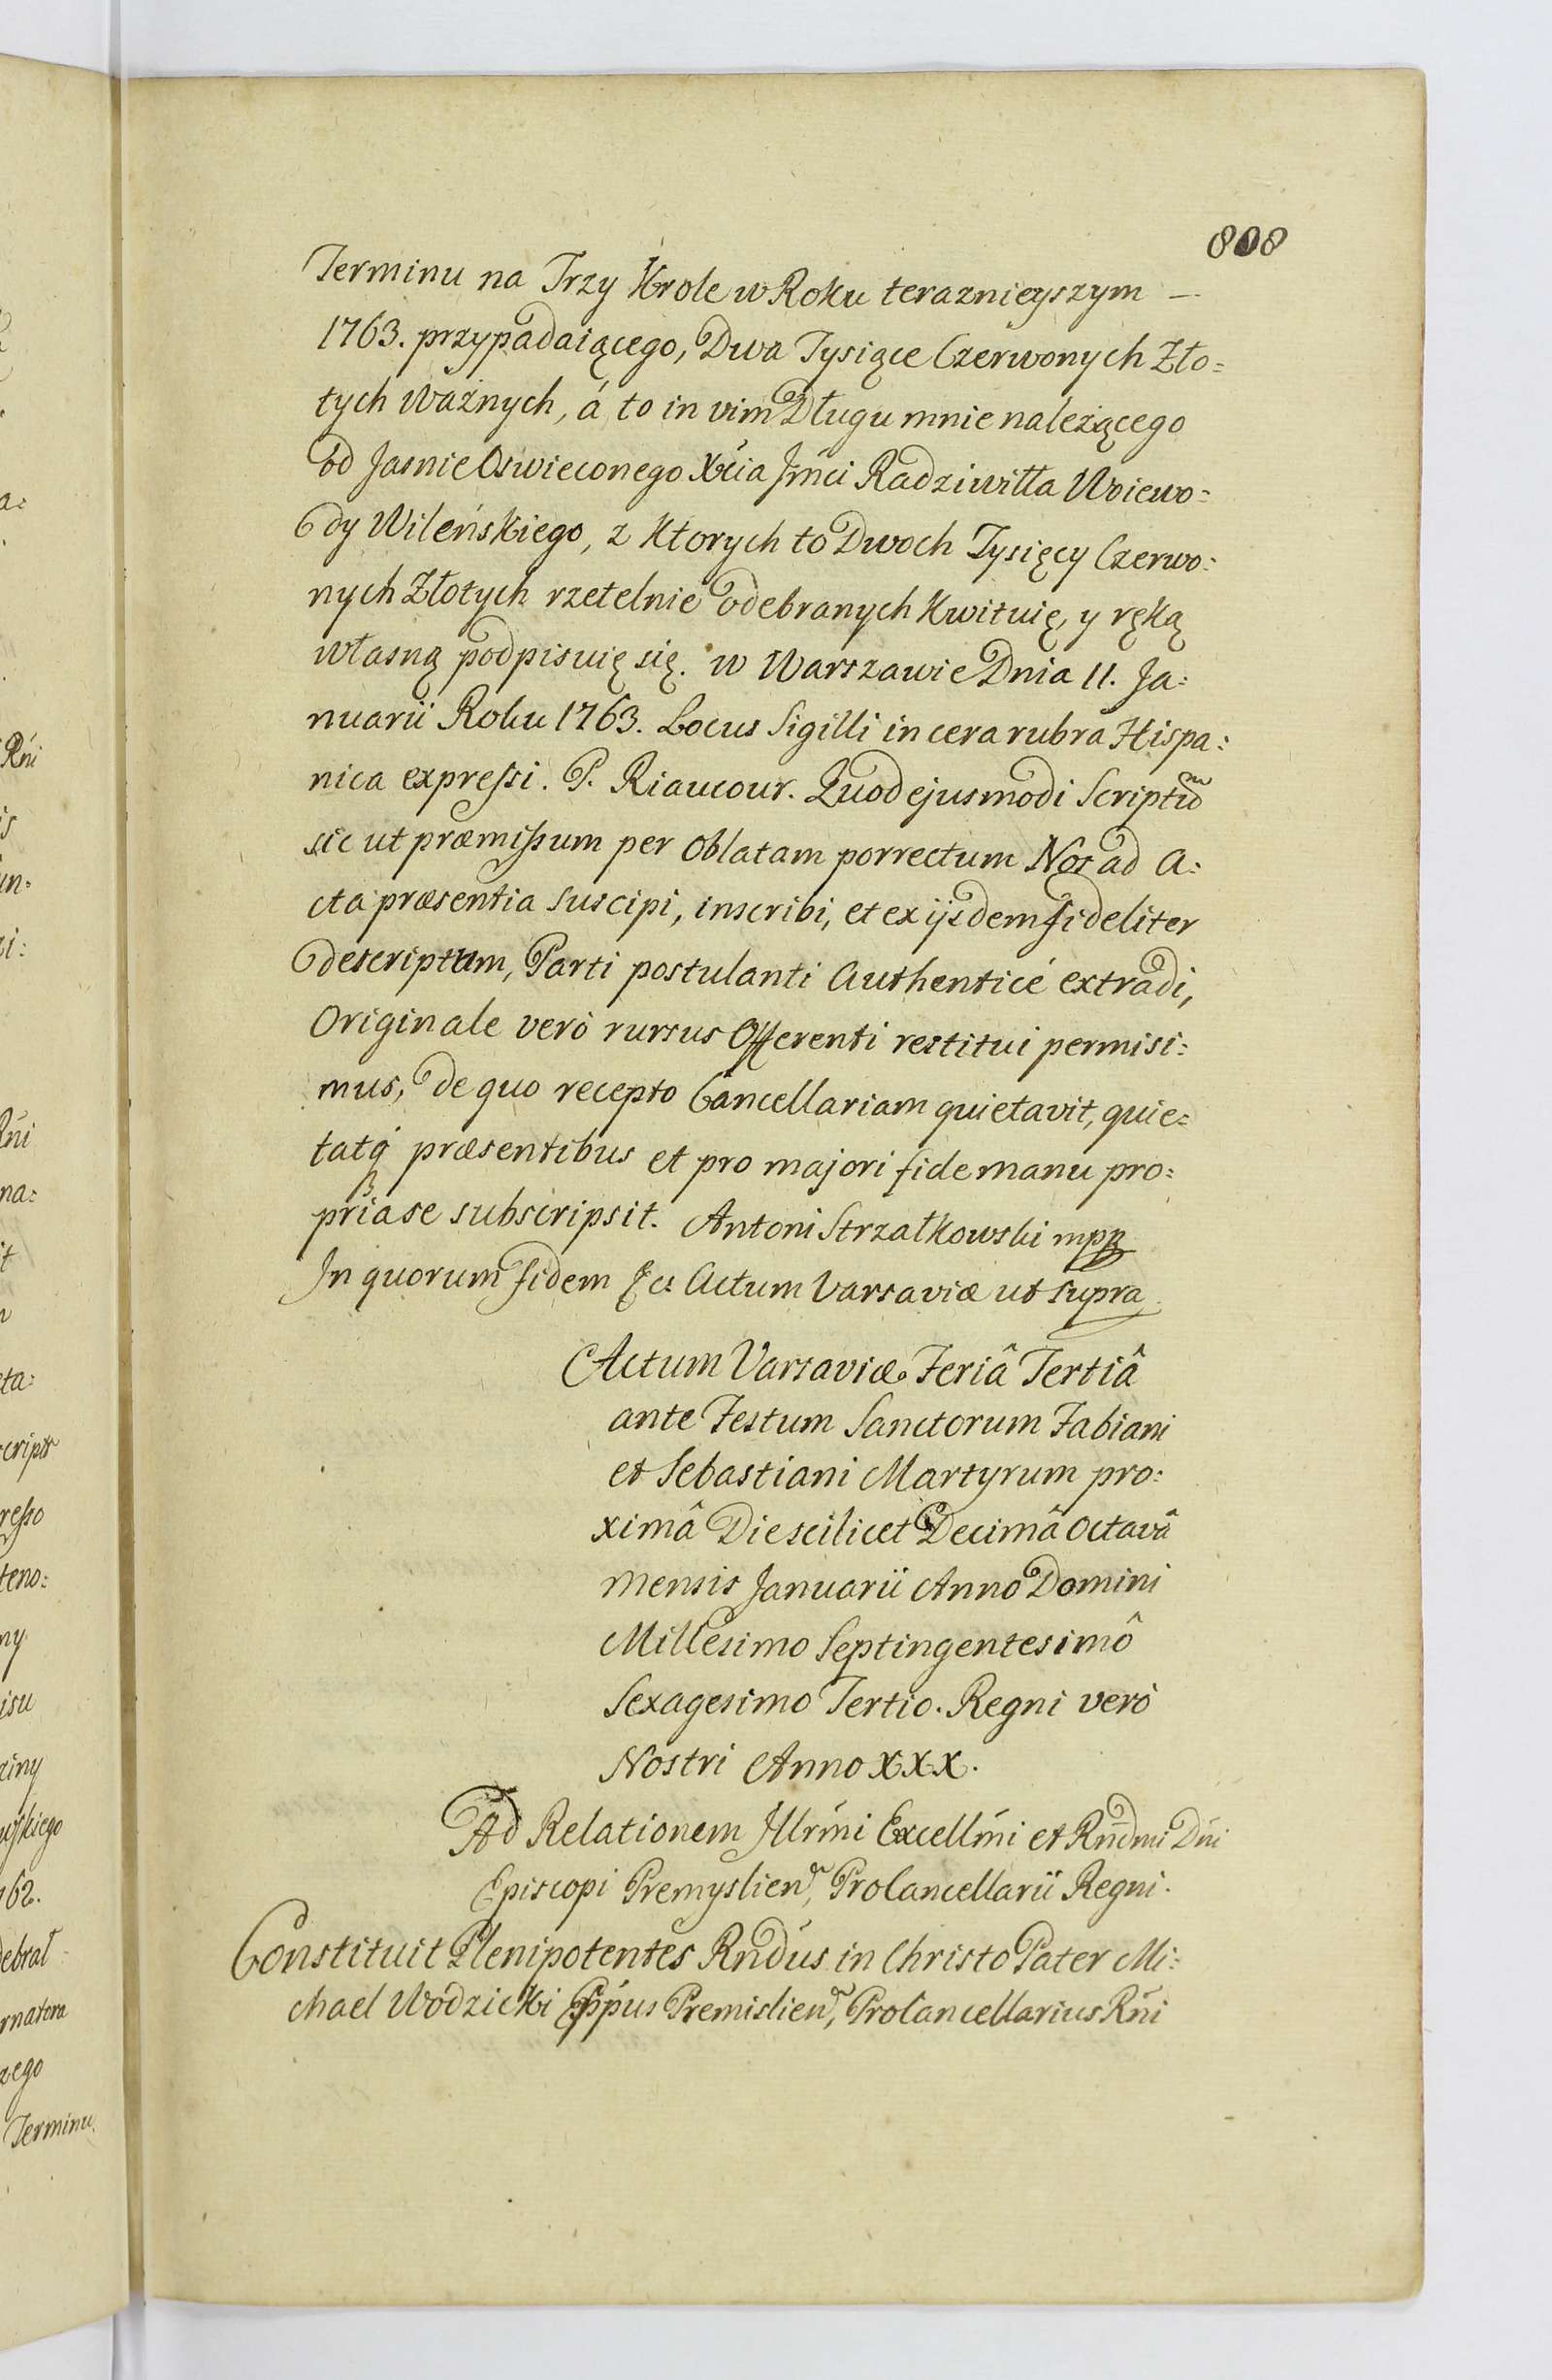 808
Terminu na Trzy Krole w Roku teraznieyszym —
1763. przypadaiącego, Dwa Tysiące Czerwonych Zło=
tych ważnych, á to in vim Długu mnie należącego
od Jasnie Oswieconego Xcia Jmći Radziwiłła Woiewo=
dy Wileńskiego, z ktorych to Dwoch Tysięcy Czerwo=
nych Złotych rzetelnie odebranych kwituię, y ręką
własną podpisuię się. w Warszawie Dnia 11. Ja=
nuarii Roku 1763. Locus Sigilli in cera rubra Hispa=
nica expressi. P. Riaucour. Quod ejusmodi Scriptũ
sic ut præmissum per Oblatam porrectum Nos ad A=
cta præsentia suscipi, inscribi, et ex ijsdem fideliter
descriptum, Parti postulanti Authenticé extradi,
Originale verò rursus Offerenti restitui permisi=
mus, de quo recepto Cancellariam quietavit, quie=
tatq́ præsentibus et pro majori fide manu pro=
pria se subscripsit. Antoni Strzałkowski mpp
In quorum fidem &c Actum Varsaviæ ut supra
Actum Varsaviæ Feriâ Tertiâ
ante Festum Sanctorum Fabiani
et Sebastiani Martyrum pro=
ximâ Die scilicet Decimâ Octavâ
mensis Januarii Anno Domini
Millesimo Septingentesimô
Sexagesimo Tertio. Regni verò
Nostri Anno XXX.
Ad Relationem Illrmi Excellmi et Rndmi Dni
Episcopi Premyslien, ProCancellarii Regni.
Constituit Plenipotentes Rndus in Christo Pater Mi=
chael Wodzicki Eppus Premislien, ProCancellarius Rni